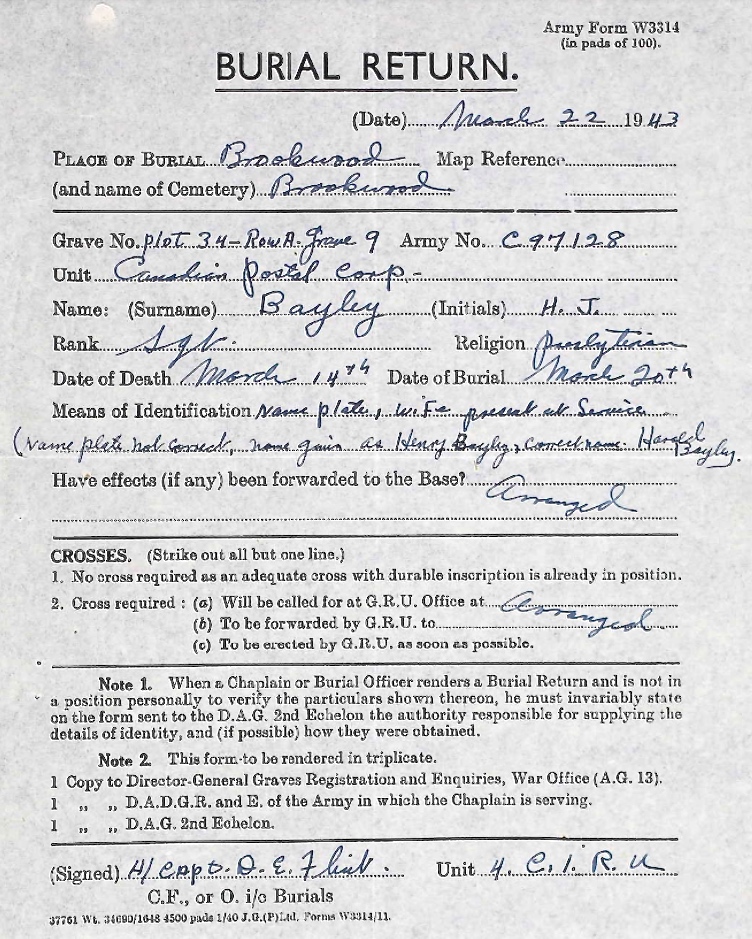 Army Form W3314
(in pads of 100).
BURIAL RETURN.
(Date) March 22 1943
PLACE OF BURIAL Brookwood Map Reference
(and name of Cemetery) Brookwood
Grave No. plot 34 - Row A. grave 9 Army No. C97128
Unit Canadian Postal Corp -
Name: (Surname) Bayley (Initials) H. J.
Rank Sgt. Religion Presbyterian
Date of Death March 14th Date of Burial March 20th
Means of Identification Name plate, wife present at Service
(Name plate not correct, name given as Henry Bayley, correct name Harold Bayley.
Have effects (if any) been forwarded to the Base? Arranged
CROSSES. (Strike out all but one line.)
1. No cross required as an adequate cross with durable inscription is already in position.
2. Cross required : (a) Will be called for at G.R.U. Office at Arranged
(b) To be forwarded by G.R.U. to
(c) To be erected by G.R.U. as soon as possible.
Note 1. When a Chaplain or Burial Officer renders a Burial Return and is not in
a position personally to verify the particulars shown thereon, he must invariably state
on the form sent to the D.A.G. 2nd Echelon the authority responsible for supplying the
details of identity, and (if possible) how they were obtained.
Note 2. This form to be rendered in triplicate.
1 Copy to Director-General Graves Registration and Enquiries, War Office (A.G. 13).
1 ,, ,, D.A.D.G.R. and E. of the Army in which the Chaplain is serving.
1 ,, ,, D.A.G. 2nd Echelon.
(Signed) H/Capt. D. E. Flint. Unit 4. C. I. R. U
C.F., or O. i/c Burials
37761 Wt. 34690/1648 4500 pads 1/40 J.G.(P)Ltd. Forms W3314/11.